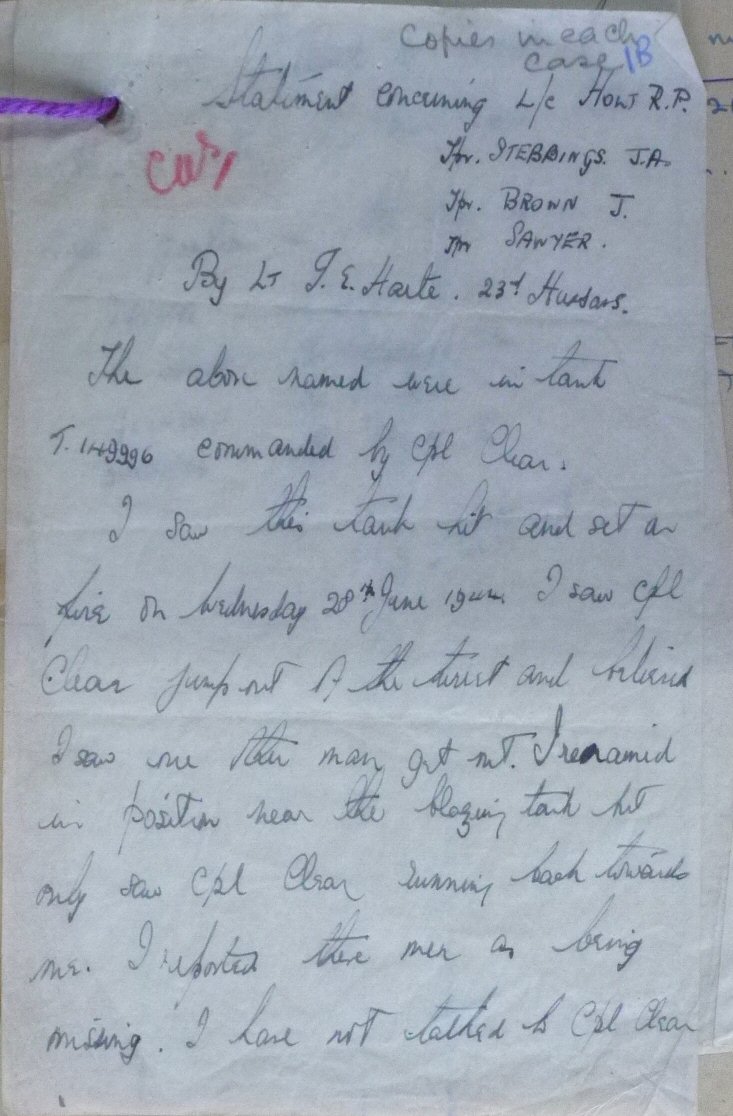 Copies in each
case 1B
Statement concerning L/c Hont R.P.
Cas/
Tpr. STEBBINGS. J.A.
Tpr. BROWN J.
Tpr SAWYER.
By Lt T. E. Harte. 23rd Hussars.
The above named were in tank
T. 149996 commanded by Cpl Clear.
I saw this tank hit and set on
fire on Wednesday 28th June 1944. I saw Cpl
Clear jump out of the turret and believed
I saw one other man get out. I remained
in position near the blazing tank but
only saw Cpl Clear running back towards
me. I reported these men as being
missing. I have not talked to Cpl Clear